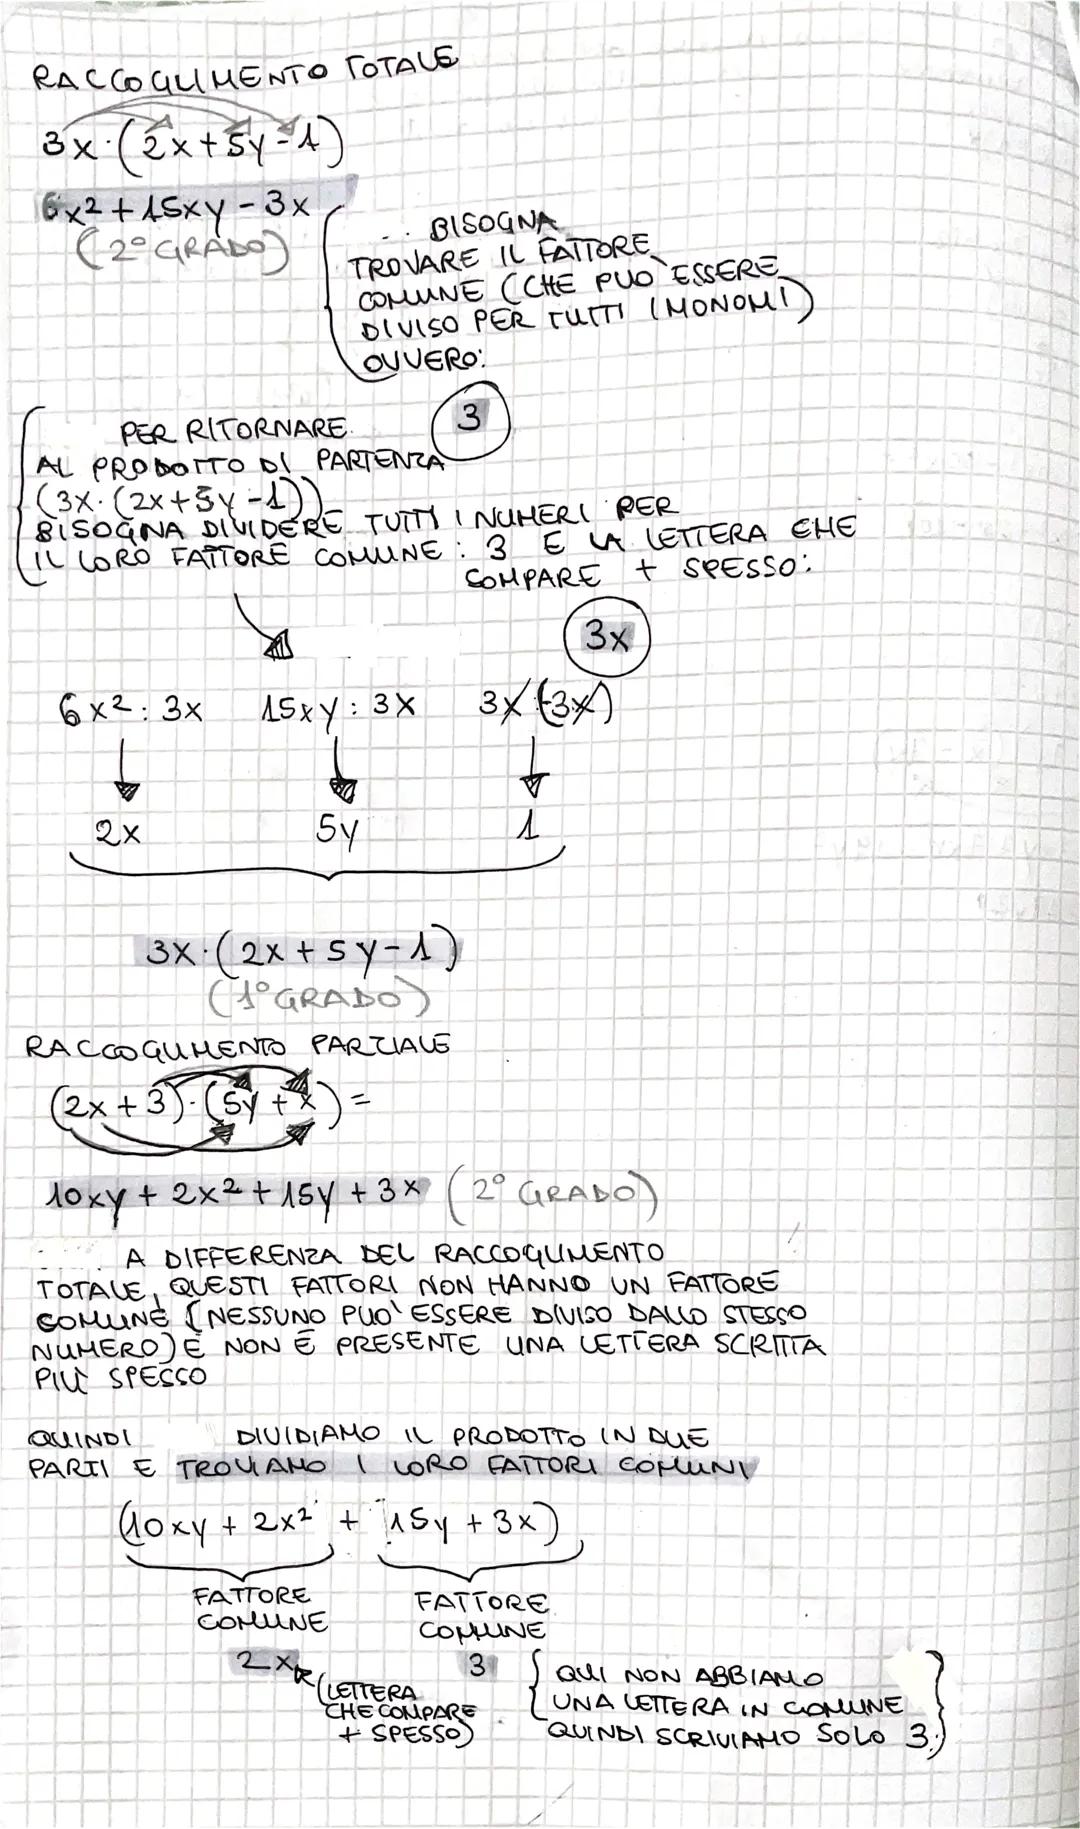 RACCOGLIMENTO TOTALE
3x·(2x+5y-1)
6x²+15xy-3x
(2° GRADO)
BISOGNA
TROVARE IL FATTORE
COMUNE (CHE PUO' ESSERE
DIVISO PER TUTTI I MONOMI)
OVVERO:
3
PER RITORNARE
AL PRODOTTO DI PARTENZA
(3x·(2x+5y-1))
BISOGNA DIVIDERE TUTTI I NUMERI PER
IL LORO FATTORE COMUNE: 3 E LA LETTERA CHE
COMPARE + SPESSO:
3x
6x²:3x 15xy:3x 3x(-3x)
2x 5y 1
3x·(2x+5y-1)
(1° GRADO)
RACCOGLIMENTO PARZIALE
(2x+3)·(5y+x)=
10xy+2x²+15y+3x (2° GRADO)
A DIFFERENZA DEL RACCOGLIMENTO
TOTALE, QUESTI FATTORI NON HANNO UN FATTORE
COMUNE (NESSUNO PUO' ESSERE DIVISO DALLO STESSO
NUMERO) E NON È PRESENTE UNA LETTERA SCRITTA
PIÙ SPESSO
QUINDI DIVIDIAMO IL PRODOTTO IN DUE
PARTI E TROVIAMO I LORO FATTORI COMUNI
(10xy + 2x² + 15y + 3x)
FATTORE FATTORE
COMUNE COMUNE
2x 3
(LETTERA
CHE COMPARE
+ SPESSO)
QUI NON ABBIAMO
UNA LETTERA IN COMUNE
QUINDI SCRIVIAMO SOLO 3.